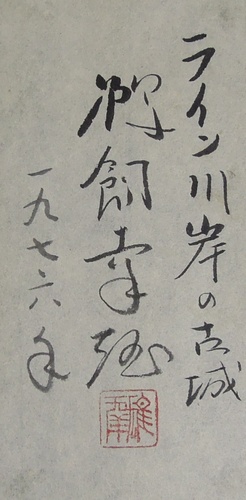 ライン川岸の古城
鵜飼幸
一九七六年